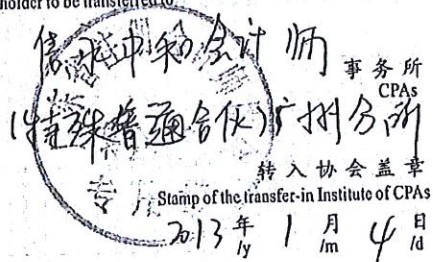 holder to be transferred to
信永中和会计师
事务所
CPAs
(特殊普通合伙)广州分所
转入协会盖章
Stamp of the transfer-in Institute of CPAs
2013年 1月 4日
/y /m /d